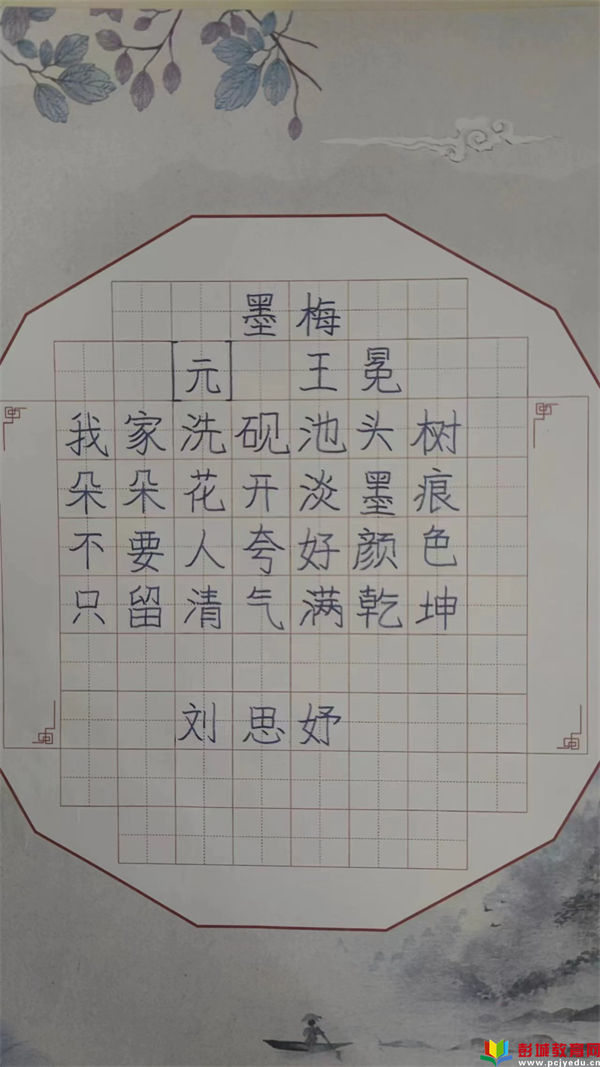 墨梅
[元] 王冕
我家洗砚池头树
朵朵花开淡墨痕
不要人夸好颜色
只留清气满乾坤
刘思妤
彭城教育网
www.pcjyedu.cn